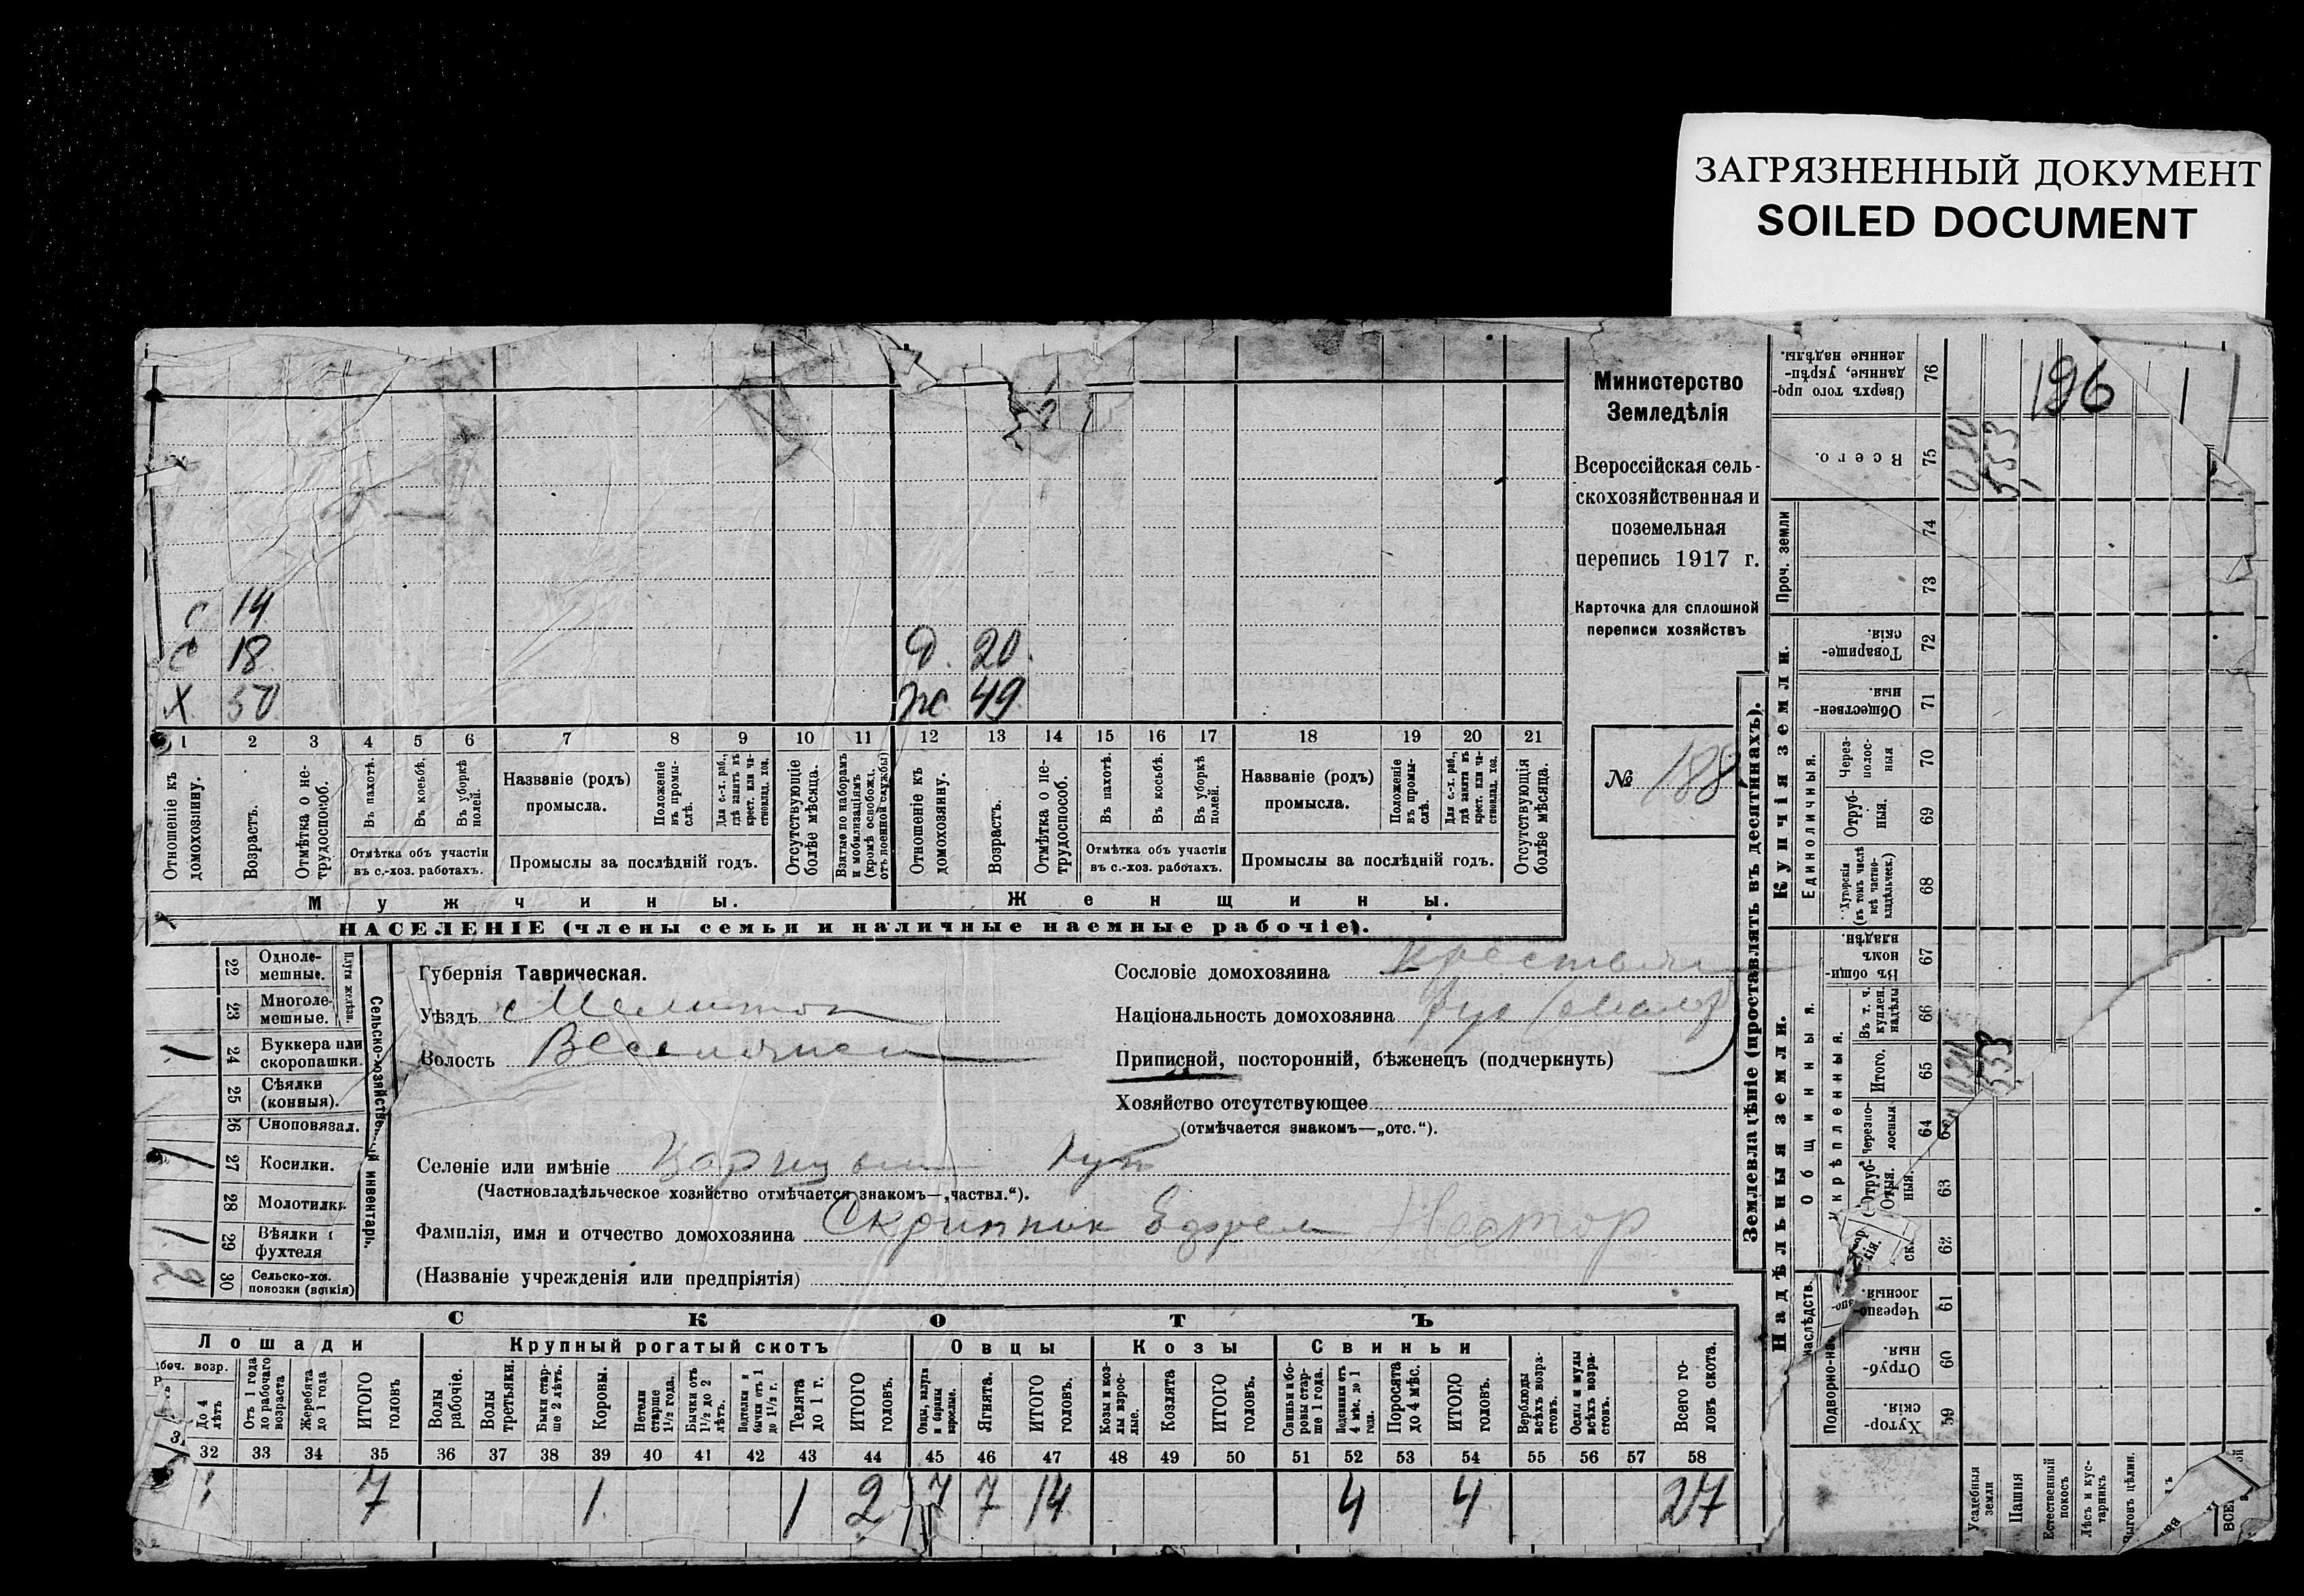 ЗАГРЯЗНЕННЫЙ ДОКУМЕНТ
SOILED DOCUMENT
196
Министерство
Земледѣлія
Всероссійская сель-
скохозяйственная и
поземельная
перепись 1917 г.
Карточка для сплошной
переписи хозяйствъ
№ 188
с 14
с 18
х 50
д. 20
ж 49
1 2 3 4 5 6 7 8 9 10 11 12 13 14 15 16 17 18 19 20 21
Отношеніе къ домохозяину.
Возрастъ.
Отмѣтка о не-трудоспособ.
Въ пахотѣ.
Въ косьбѣ.
Въ уборкѣ полей.
Отмѣтка объ участіи
въ с.-хоз. работахъ.
Названіе (родъ)
промысла.
Положеніе въ промы-слѣ.
Для с.-х. раб., гдѣ занятъ въ крест. или ча-стновлад. хоз.
Промыслы за послѣдній годъ.
Отсутствующіе болѣе мѣсяца.
Взятые по наборамъ и мобилизаціямъ (кромѣ освобожд. отъ военной службы)
Отношеніе къ домохозяину.
Возрастъ.
Отмѣтка о не-трудоспособ.
Въ пахотѣ.
Въ косьбѣ.
Въ уборкѣ полей.
Отмѣтка объ участіи
въ с.-хоз. работахъ.
Названіе (родъ)
промысла.
Положеніе въ промы-слѣ.
Для с.-х. раб., гдѣ занята въ крест. или ча-стновлад. хоз.
Промыслы за послѣдній годъ.
Отсутствующія болѣе мѣсяца.
Мужчины.
Женщины.
НАСЕЛЕНІЕ (члены семьи и наличные наемные рабочіе).
Сельско-хозяйственный инвентарь.
Плуги желѣзн.
22 Однолемешные.
23 Многолемешные.
1 24 Буккера или скоропашки.
25 Сѣялки (конныя).
26 Сноповязал.
1 27 Косилки.
28 Молотилки
1 29 Вѣялки и фухтеля
2 30 Сельско-хоз. повозки (всякія)
Губернія Таврическая.
Уѣздъ Мелитоп
Волость Веселянск
Селеніе или имѣніе Царицын Кут
(Частновладѣльческое хозяйство отмѣчается знакомъ—„частвл.“).
Фамилія, имя и отчество домохозяина Скрипник Ефрем Нестор
(Названіе учрежденія или предпріятія)
Сословіе домохозяина крестьян
Національность домохозяина рус (малор)
Приписной, посторонній, бѣженецъ (подчеркнуть)
Хозяйство отсутствующее
(отмѣчается знакомъ—„отс.“).
СКОТЪ
Лошади
Крупный рогатый скотъ
Овцы
Козы
Свиньи
До 4 лѣтъ
Отъ 1 года до рабочаго возраста
Жеребята до 1 года
ИТОГО головъ
Волы рабочіе.
Волы третьяки.
Быки стар-ше 2 лѣтъ.
Коровы.
Нетели старше 1½ года.
Бычки отъ 1½ до 2 лѣтъ.
Подтелки и бычки отъ 1 до 1½ г.
Телята до 1 г.
ИТОГО головъ.
Овцы, валухи и бараны взрослые.
Ягнята.
ИТОГО головъ.
Козы и коз-лы взрос-лые.
Козлята
ИТОГО головъ.
Свиньи и бо-ровы стар-ше 1 года.
Подсвинки отъ 4 мѣс. до 1 года.
Поросята до 4 мѣс.
ИТОГО головъ.
Верблюды всѣхъ возра-стовъ.
Ослы и мулы всѣхъ возра-стовъ.
Всего го-ловъ скота.
32 33 34 35 36 37 38 39 40 41 42 43 44 45 46 47 48 49 50 51 52 53 54 55 56 57 58
7 1 1 2 7 7 14 4 4 27
Землевладѣніе (проставлять въ десятинахъ).
Надѣльныя земли.
Купчія земли.
Проч. земли
Единоличныя.
Общинныя.
Укрѣпленныя.
Подворно-наслѣдств.
Хутор-скія 59
Отруб-ныя. 60
Черезпо-лосныя. 61
62
Отруб-ныя. 63
Черезпо-лосныя 64
Итого. 65
Въ т. ч. куплен. надѣлы 66
Въ общи-номъ владѣн. 67
Хуторскія (въ томъ числѣ всѣ частно-владѣльческ.) 68
Отруб-ныя. 69
Через-полос-ныя 70
Обществен-ныя. 71
Товарище-скія. 72
73
74
Всего. 75
Сверхъ того про-данные, укрѣп-ленные надѣлы. 76
Усадебныя земли
Пашня 533 533
Естественный покосъ
Лѣсъ и кус-тарникъ
Выгонъ цѣлин.